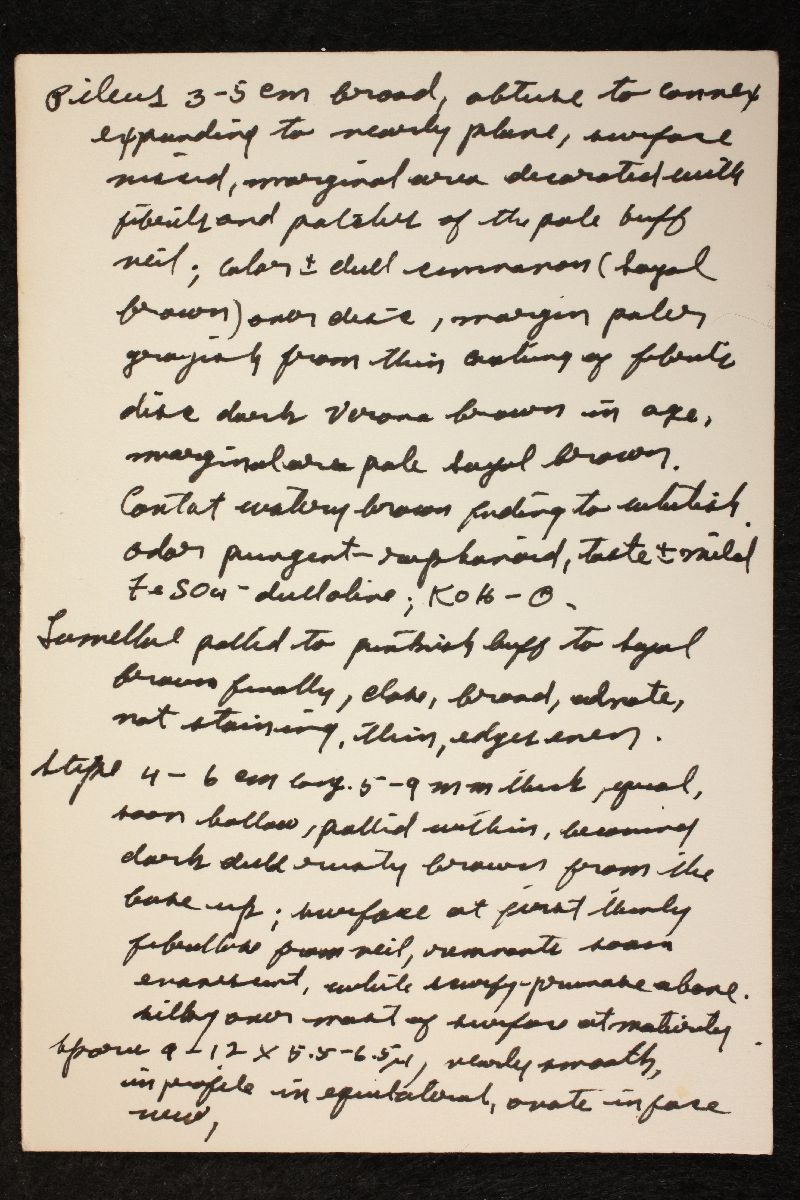 Pileus 3-5 cm broad, obtuse to convex
expanding to nearly plane, surface
viscid, marginal area decorated with
fibrils and patches of the pale buff
veil; color ± dull cinnamon (sayal
brown) over disc, margin paler
grayish from thin coating of fibrils
disc dark Verona brown in age,
marginal area pale sayal brown.
Context watery brown fading to whitish.
odor pungent-raphanoid, taste ± mild
FeSO4 - dull olive; KOH - O.
Lamellae pallid to pinkish buff to sayal
brown finally, close, broad, adnate,
not staining, thin, edges even.
Stipe 4-6 cm long. 5-9 mm thick, equal,
soon hollow, pallid within, becoming
dark dull rusty brown from the
base up; surface at first thinly
fibrillose from veil, remnants soon
evanescent, white scurfy-pruinose above.
silky over most of surface at maturity.
Spores 9-12 x 5.5-6.5 µ, nearly smooth,
in profile inequilateral, ovate in face
view,